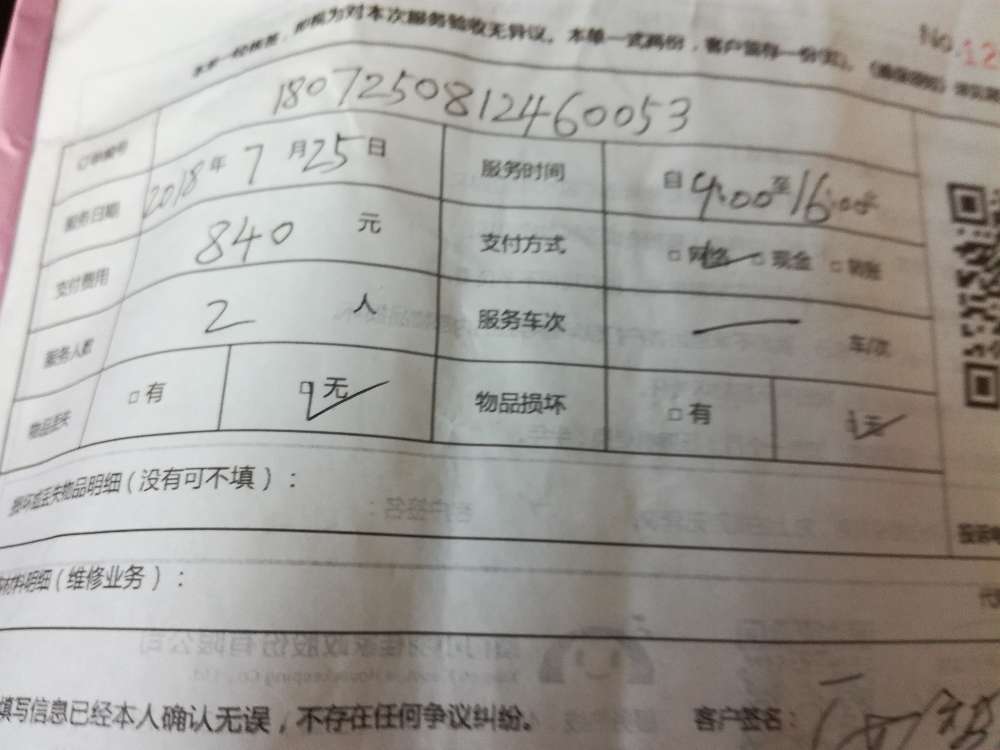 本单一经核签，即视为对本次服务验收无异议。本单一式两份，客户留存一份
No.12
订单编号 180725081246 0053
服务日期 2018年7月25日 服务时间 自9:00至16:00
支付费用 840元 支付方式 □网络 □现金 □转账
服务人数 2人 服务车次 一 车/次
物品丢失 □有 □无 物品损坏 □有 □无
损坏或丢失物品明细（没有可不填）：
材料明细（维修业务）：
填写信息已经本人确认无误，不存在任何争议纠纷。 客户签名：